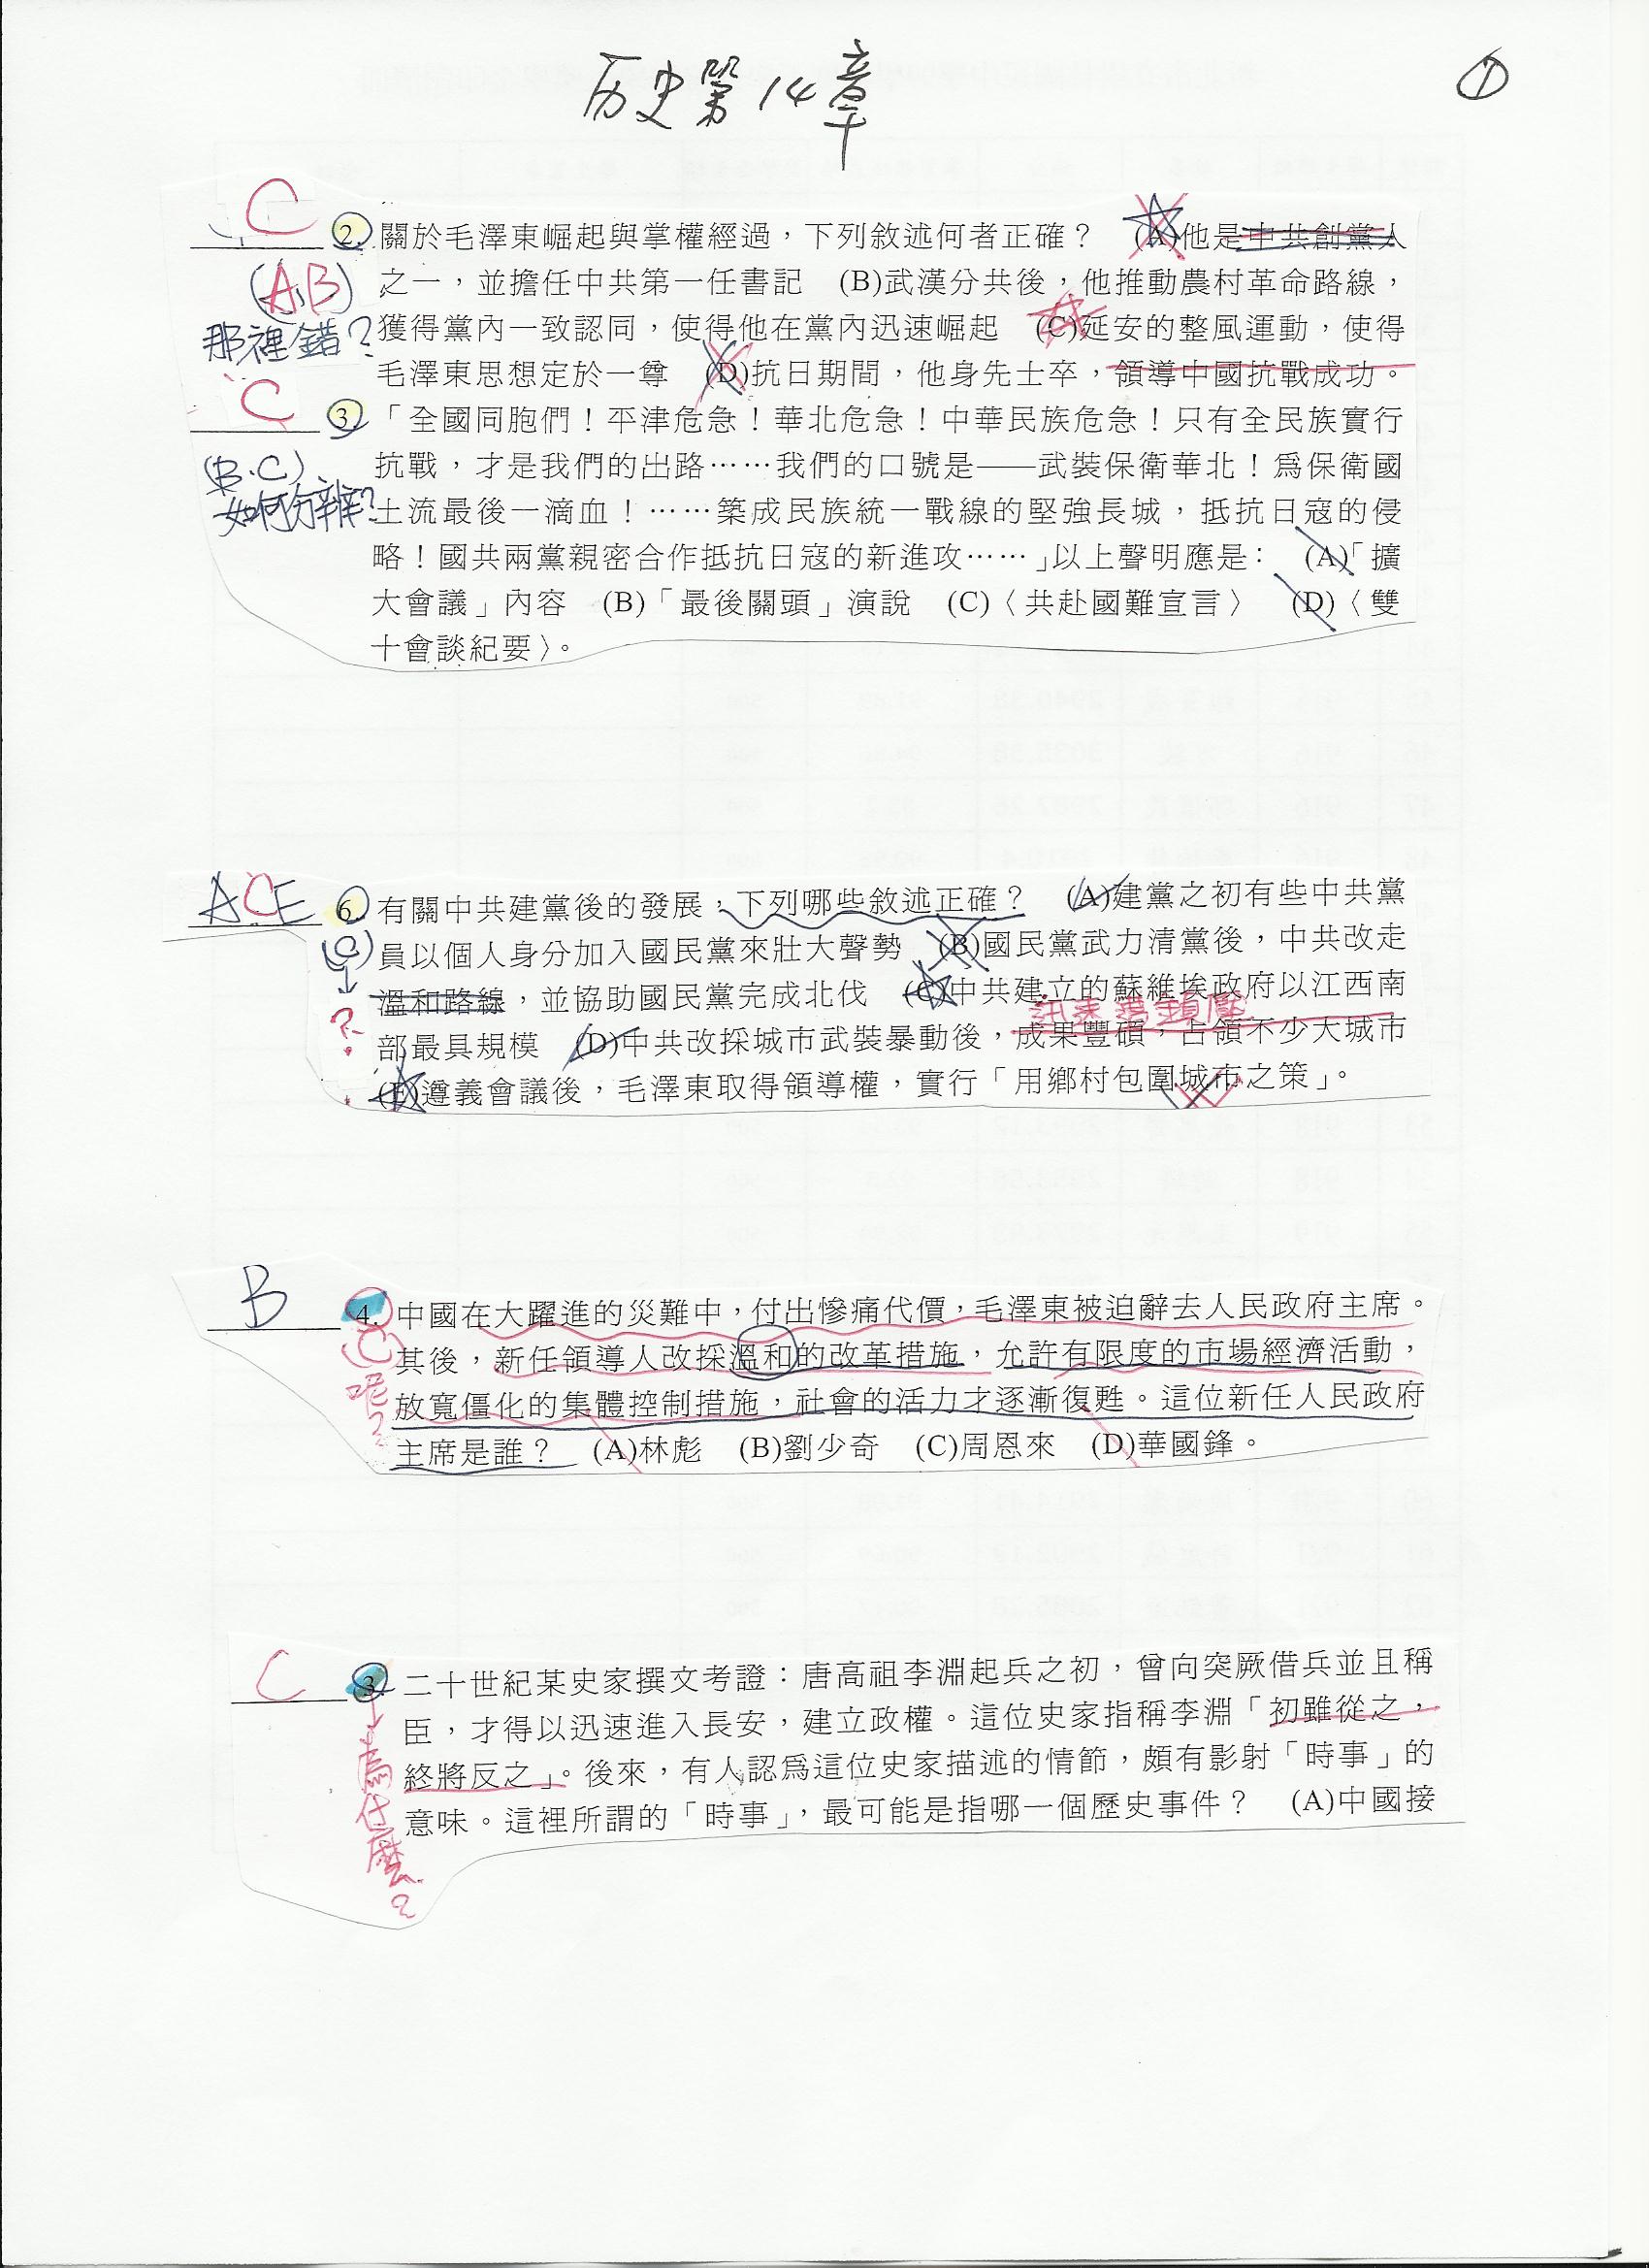 历史第14章
①
C
2. 關於毛澤東崛起與掌權經過，下列敘述何者正確？ (A)他是中共創黨人
(A、B) 之一，並擔任中共第一任書記 (B)武漢分共後，他推動農村革命路線，
那裡錯？ 獲得黨內一致認同，使得他在黨內迅速崛起 (C)延安的整風運動，使得
毛澤東思想定於一尊 (D)抗日期間，他身先士卒，領導中國抗戰成功。
C 3. 「全國同胞們！平津危急！華北危急！中華民族危急！只有全民族實行
(B.C) 抗戰，才是我們的出路……我們的口號是——武裝保衛華北！爲保衛國
如何分辨？ 土流最後一滴血！……築成民族統一戰線的堅強長城，抵抗日寇的侵
略！國共兩黨親密合作抵抗日寇的新進攻……」以上聲明應是： (A)「擴
大會議」內容 (B)「最後關頭」演說 (C)〈共赴國難宣言〉 (D)〈雙
十會談紀要〉。
ACE 6. 有關中共建黨後的發展，下列哪些敘述正確？ (A)建黨之初有些中共黨
(C) 員以個人身分加入國民黨來壯大聲勢 (B)國民黨武力清黨後，中共改走
↓ 溫和路線，並協助國民黨完成北伐 (C)中共建立的蘇維埃政府以江西南
迅速遭鎮壓
？ 部最具規模 (D)中共改採城市武裝暴動後，成果豐碩，占領不少大城市
(E)遵義會議後，毛澤東取得領導權，實行「用鄉村包圍城市之策」。
B 4. 中國在大躍進的災難中，付出慘痛代價，毛澤東被迫辭去人民政府主席。
(C) 其後，新任領導人改採溫和的改革措施，允許有限度的市場經濟活動，
呢？ 放寬僵化的集體控制措施，社會的活力才逐漸復甦。這位新任人民政府
主席是誰？ (A)林彪 (B)劉少奇 (C)周恩來 (D)華國鋒。
C 3. 二十世紀某史家撰文考證：唐高祖李淵起兵之初，曾向突厥借兵並且稱
臣，才得以迅速進入長安，建立政權。這位史家指稱李淵「初雖從之，
→爲什麼？ 終將反之」。後來，有人認爲這位史家描述的情節，頗有影射「時事」的
意味。這裡所謂的「時事」，最可能是指哪一個歷史事件？ (A)中國接